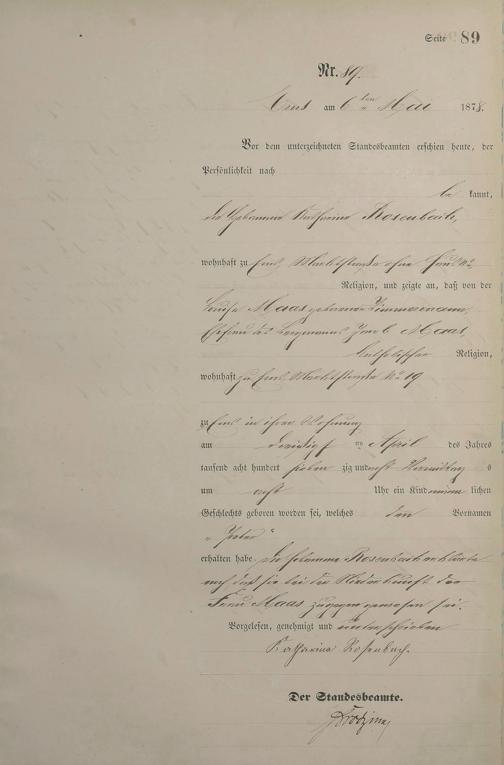 Seite 89
Nr. 89.
Ems am 6ten Mai 1878.
Vor dem unterzeichneten Standesbeamten erschien heute, der
Persönlichkeit nach
be kannt,
die Hebamme Katharina Rosenbach,
wohnhaft zu Ems, Marktstraße ohne Haus No
Religion, und zeigte an, daß von der
Louise Maas geborene Zimmermann,
Ehefrau des Jacob Maas,
katholischer Religion,
wohnhaft zu Ems Marktstraße No 19
zu Ems in ihrer Wohnung
am dreißigsten April des Jahres
tausend acht hundert sieben zig und acht Vormittag s
um acht Uhr ein Kind männ lichen
Geschlechts geboren worden sei, welches den Vornamen
„Peter“
erhalten habe. Die Hebamme Rosenbach erklärte
noch daß sie bei der Niederkunft der
Frau Maas zugegen gewesen sei.
Vorgelesen, genehmigt und unterschrieben
Katharina Rosenbach.
Der Standesbeamte.